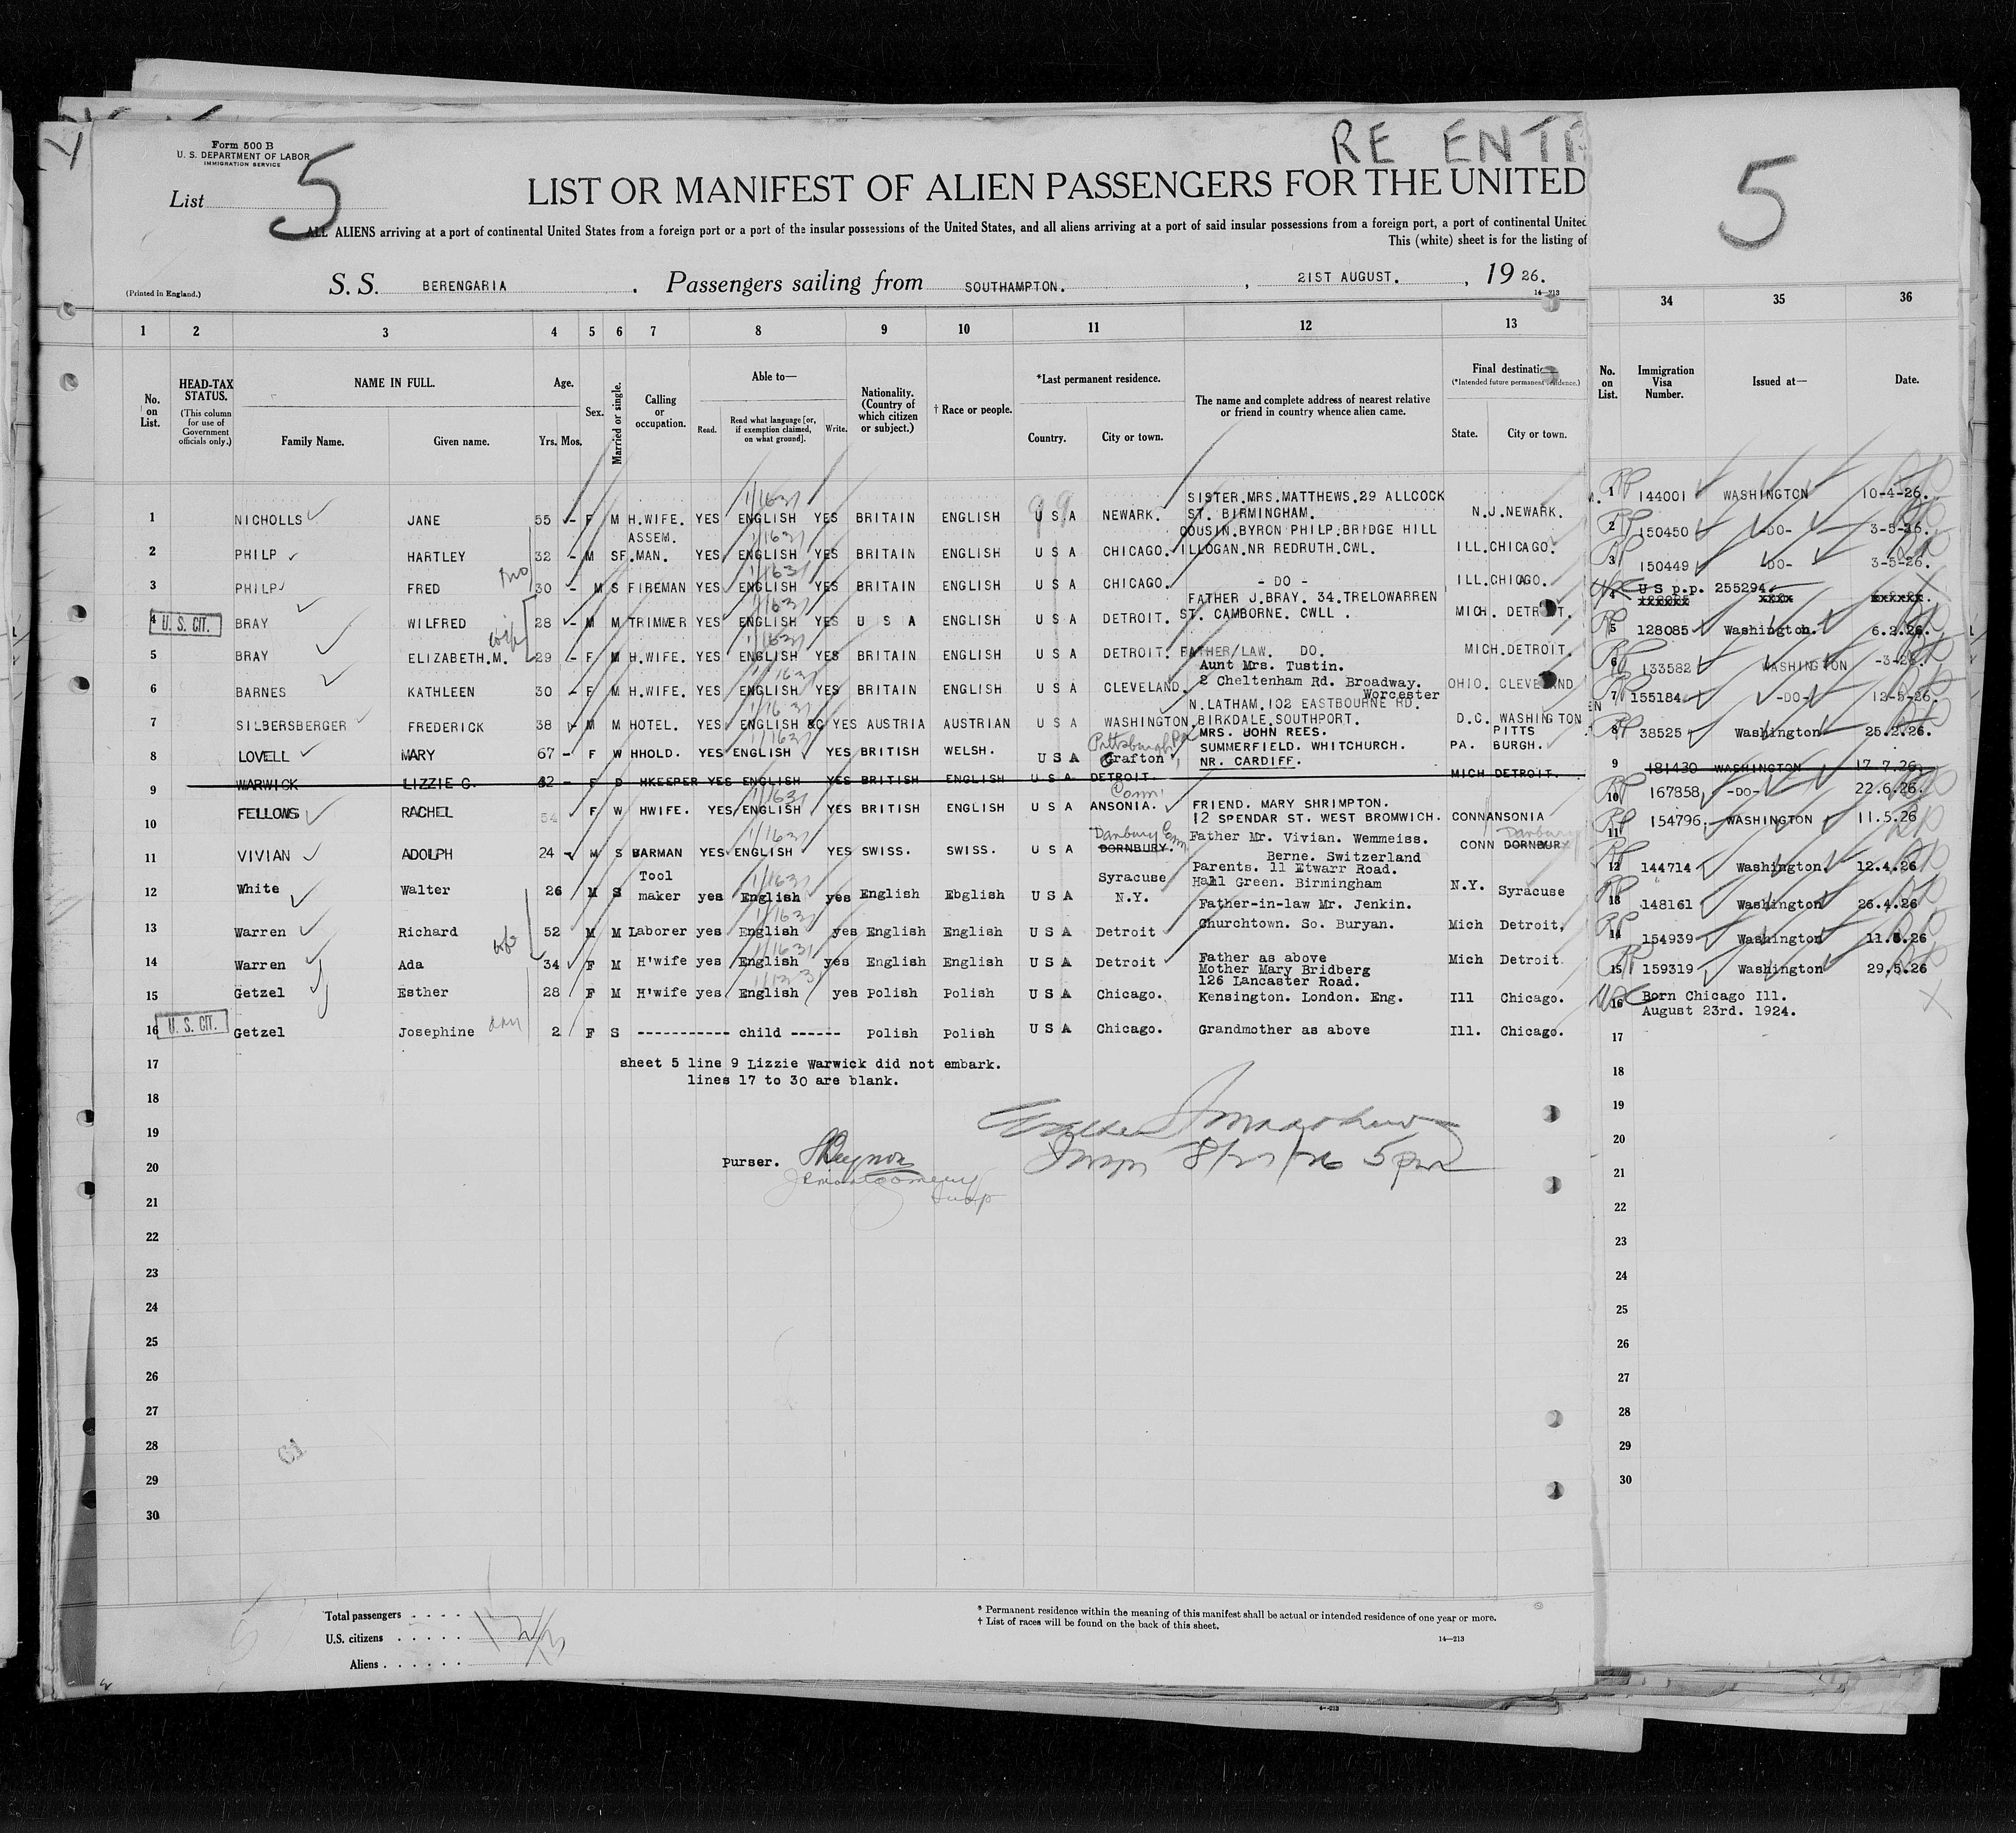 Form 500 B
U. S. DEPARTMENT OF LABOR
IMMIGRATION SERVICE
List 5
RE ENT
LIST OR MANIFEST OF ALIEN PASSENGERS FOR THE UNITED
ALL ALIENS arriving at a port of continental United States from a foreign port or a port of the insular possessions of the United States, and all aliens arriving at a port of said insular possessions from a foreign port, a port of continental United
This (white) sheet is for the listing of
(Printed in England.)
S. S. BERENGARIA . Passengers sailing from SOUTHAMPTON. , 21ST AUGUST. , 19 26.
14—213
5
1 2 3 4 5 6 7 8 9 10 11 12 13 34 35 36
No. on List.
HEAD-TAX STATUS.
(This column for use of Government officials only.)
NAME IN FULL.
Family Name. Given name.
Age.
Yrs. Mos.
Sex.
Married or single.
Calling or occupation.
Able to—
Read. Read what language [or, if exemption claimed, on what ground]. Write.
Nationality. (Country of which citizen or subject.)
† Race or people.
*Last permanent residence.
Country. City or town.
The name and complete address of nearest relative or friend in country whence alien came.
Final destination
(*Intended future permanent residence.)
State. City or town.
No. on List.
Immigration Visa Number.
Issued at—
Date.
1 NICHOLLS JANE 55 - F M H.WIFE. YES ENGLISH YES BRITAIN ENGLISH U S A NEWARK. SISTER.MRS.MATTHEWS.29 ALLCOCK ST. BIRMINGHAM. N.J.NEWARK. 1 144001 WASHINGTON 10-4-26.
2 PHILP HARTLEY 32 - M S ASSEM. F.MAN. YES ENGLISH YES BRITAIN ENGLISH U S A CHICAGO. COUSIN.BYRON PHILP.BRIDGE HILL ILLOGAN.NR REDRUTH.CWL. ILL.CHICAGO. 2 150450 -DO- 3-5-26.
3 PHILP FRED 30 - M S FIREMAN YES ENGLISH YES BRITAIN ENGLISH U S A CHICAGO. - DO - ILL.CHICAGO. 3 150449 -DO- 3-5-26.
4 U. S. CIT. BRAY WILFRED 28 - M M TRIMMER YES ENGLISH YES U S A ENGLISH U S A DETROIT. FATHER J.BRAY. 34.TRELOWARREN ST. CAMBORNE. CWLL . MICH. DETROIT. 4 U S p.p. 255294.
wife
5 BRAY ELIZABETH.M. 29 - F M H.WIFE. YES ENGLISH YES BRITAIN ENGLISH U S A DETROIT. FATHER/LAW. DO. MICH.DETROIT. 5 128085 Washington. 6.2.26.
6 BARNES KATHLEEN 30 - F M H.WIFE. YES ENGLISH YES BRITAIN ENGLISH U S A CLEVELAND. Aunt Mrs. Tustin. 2 Cheltenham Rd. Broadway. Worcester OHIO. CLEVELAND 6 133582 WASHINGTON -3-26.
7 SILBERSBERGER FREDERICK 38 - M M HOTEL. YES ENGLISH &C YES AUSTRIA AUSTRIAN U S A WASHINGTON. N.LATHAM.102 EASTBOURNE RD. BIRKDALE.SOUTHPORT. D.C. WASHINGTON 7 155184 -DO- 12-5-26.
8 LOVELL MARY 67 - F W HHOLD. YES ENGLISH YES BRITISH WELSH. U S A Pittsburgh Pa Grafton MRS. JOHN REES. SUMMERFIELD. WHITCHURCH. NR. CARDIFF. PA. PITTS BURGH. 8 38525 Washington 25.2.26.
9 WARWICK LIZZIE G. 42 - F D HKEEPER YES ENGLISH YES BRITISH ENGLISH U S A DETROIT. MICH DETROIT. 9 181430 WASHINGTON 17.7.26
10 FELLOWS RACHEL 54 F W HWIFE. YES ENGLISH YES BRITISH ENGLISH U S A ANSONIA. Conn. FRIEND. MARY SHRIMPTON. 12 SPENDAR ST. WEST BROMWICH. CONN ANSONIA 10 167858 -DO- 22.6.26.
11 VIVIAN ADOLPH 24 - M S BARMAN YES ENGLISH YES SWISS. SWISS. U S A Danbury Conn. DORNBURY. Father Mr. Vivian. Wemmeiss. Berne. Switzerland CONN Danbury DORNBURY 11 154796 WASHINGTON 11.5.26
12 White Walter 26 M S Tool maker yes English yes English Ebglish U S A Syracuse N.Y. Parents. 11 Etwarr Road. Hall Green. Birmingham N.Y. Syracuse 12 144714 Washington. 12.4.26
13 Warren Richard 52 M M Laborer yes English yes English English U S A Detroit Father-in-law Mr. Jenkin. Churchtown. So. Buryan. Mich Detroit. 13 148161 Washington 26.4.26
wife
14 Warren Ada 34 F M H'wife yes English yes English English U S A Detroit Father as above Mich Detroit. 14 154939 Washington 11.5.26
15 Getzel Esther 28 F M H'wife yes English yes Polish Polish U S A Chicago. Mother Mary Bridberg 126 Lancaster Road. Kensington. London. Eng. Ill Chicago. 15 159319 Washington 29.5.26
16 U. S. CIT. Getzel Josephine dau 2 F S ----------- child ------ Polish Polish U S A Chicago. Grandmother as above Ill. Chicago. 16 Born Chicago Ill. August 23rd. 1924.
17 sheet 5 line 9 Lizzie Warwick did not embark. 17
lines 17 to 30 are blank.
18 18
19 19
20 Purser. 8/27/26 5 pm 20
J R Montgomery
21 21
22 22
23 23
24 24
25 25
26 26
27 27
28 28
29 29
30 30
Total passengers . . . .
U.S. citizens . . . . .
Aliens . . . . . .
* Permanent residence within the meaning of this manifest shall be actual or intended residence of one year or more.
† List of races will be found on the back of this sheet.
14—213